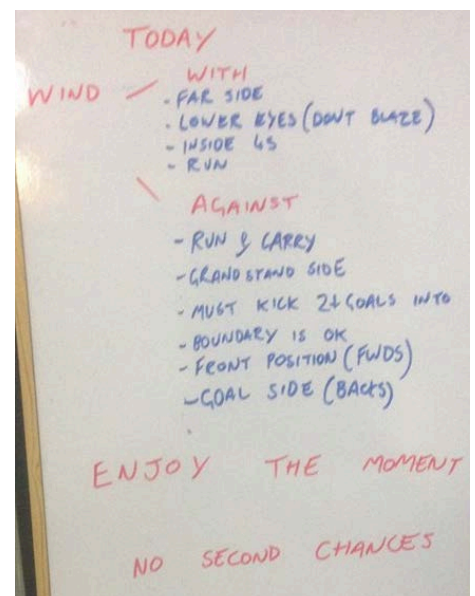 TODAY
WIND - WITH
- FAR SIDE
- LOWER EYES (DONT BLAZE)
- INSIDE 45
- RUN
AGAINST
- RUN & CARRY
- GRANDSTAND SIDE
- MUST KICK 2+ GOALS INTO
- BOUNDARY IS OK
- FRONT POSITION (FWDS)
- GOAL SIDE (BACKS)
ENJOY THE MOMENT
NO SECOND CHANCES